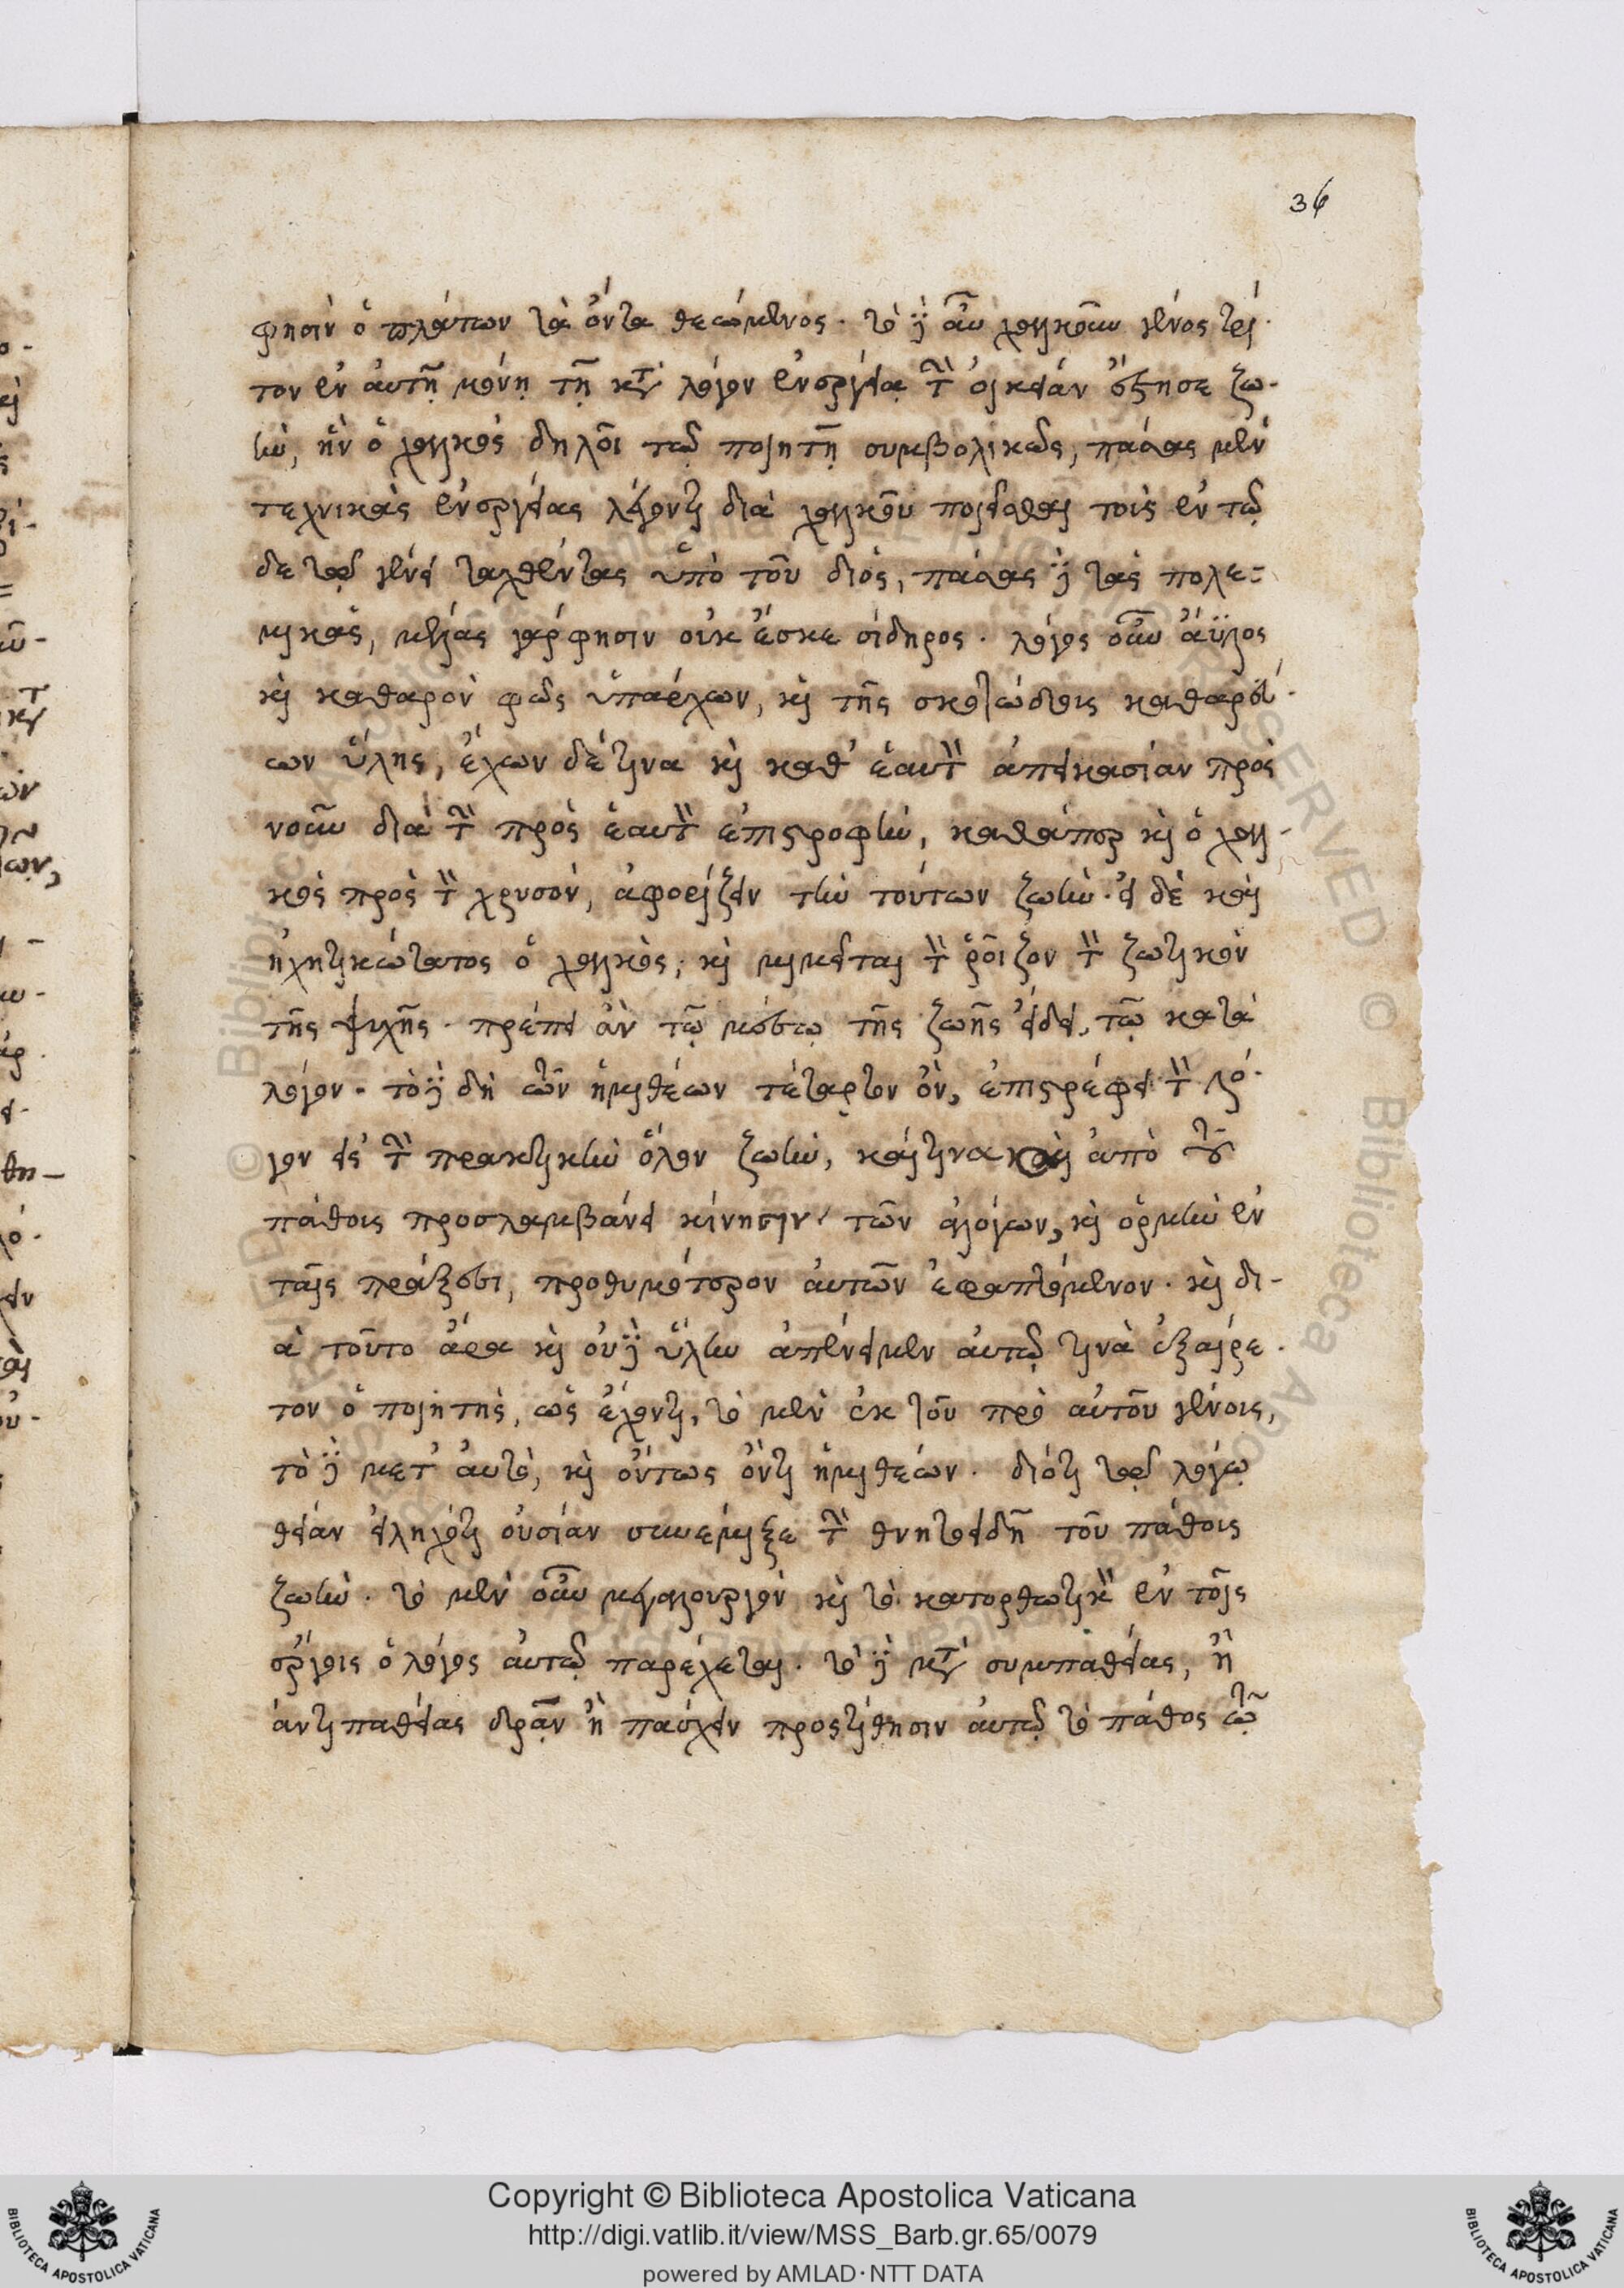 36
φησὶν ὁ πλάτων τὰ ὄντα θεώμενος. τὸ δ' αὖ χαλκοῦν γένος τρί-
τον ἐν αὐτῇ μόνῃ τῇ κατὰ λόγον ἐνεργείᾳ τὴν οἰκείαν ἔστησε ζω-
ὴν, ἣν ὁ χαλκὸς δηλοῖ τῷ ποιητῇ συμβολικῶς, πάσας μὲν
τεχνικὰς ἐνεργείας λέγοντι διὰ χαλκοῦ ποιεῖσθαι τοῖς ἐν τῷ
δε τῷ γένει ταχθέντας ὑπὸ τοῦ διός, πάσας δὲ τὰς πολε-
μικάς, μέλας γάρ φησιν οὐκ ἔσκε σίδηρος. λόγος οὖν ἄϋλος
καὶ καθαρὸν φῶς ὑπάρχων, καὶ τῆς σκοτώδους καθαρεύ-
ων ὕλης, ἔχων δέ τινα καὶ καθ' ἑαυτὸν ἀπεικασίαν πρὸς
νοῦν διὰ τὴν πρὸς ἑαυτὸν ἐπιστροφὴν, καθάπερ καὶ ὁ χαλ-
κὸς πρὸς τὸν χρυσόν, ἀφορίζειν τὴν τούτων ζωήν. εἰ δὲ καὶ
ἠχητικώτατος ὁ χαλκὸς, καὶ μιμεῖται τὸν ῥοῖζον τὸν ζωτικὸν
τῆς ψυχῆς. πρέπει ἂν τῷ μέσῳ τῆς ζωῆς εἴδει, τῷ κατὰ
λόγον. τὸ δὲ δὴ τῶν ἡμιθέων τέταρτον ὂν, ἐπιστρέφει τὸν λό-
γον εἰς τὴν πρακτικὴν ὅλον ζωὴν, καί τινα καὶ ἀπὸ τοῦ
πάθους προσλαμβάνει κίνησιν τῶν ἀλόγων, καὶ ὁρμὴν ἐν
ταῖς πράξεσι, προθυμότερον αὐτῶν ἐφαπτόμενον. καὶ δι-
ὰ τοῦτο ἄρα καὶ οὐδὲ ὕλην ἀπένειμεν αὐτῷ τινὰ ἐξαίρε-
τον ὁ ποιητὴς, ὡς ἔχοντι, τὸ μὲν ἐκ τοῦ πρὸ αὐτοῦ γένους,
τὸ δὲ μετ' αὐτὸ, καὶ ὄντως ὄντι ἡμιθέων. διότι τῷ λόγῳ
θείαν εἰληχότι οὐσίαν συνέμιξε τὴν θνητοειδῆ τοῦ πάθους
ζωήν. τὸ μὲν οὖν μεγαλουργὸν καὶ τὸ κατορθωτικὸν ἐν τοῖς
ἔργοις ὁ λόγος αὐτῷ παρέχεται. τὸ δὲ μετὰ συμπαθείας, ἢ
ἀντιπαθείας δρᾷν ἢ πάσχειν προστίθησιν αὐτῷ τὸ πάθος τῷ
Copyright © Biblioteca Apostolica Vaticana
http://digi.vatlib.it/view/MSS_Barb.gr.65/0079
powered by AMLAD·NTT DATA